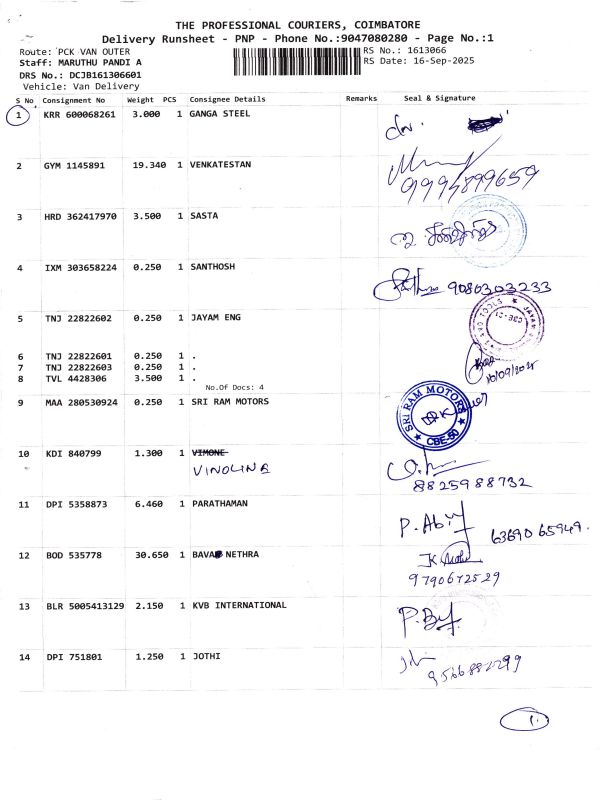 THE PROFESSIONAL COURIERS, COIMBATORE
Delivery Runsheet - PNP - Phone No.:9047080280 - Page No.:1
Route: PCK VAN OUTER RS No.: 1613066
Staff: MARUTHU PANDI A RS Date: 16-Sep-2025
DRS No.: DCJB161306601
Vehicle: Van Delivery
S No Consignment No Weight PCS Consignee Details Remarks Seal & Signature
1 KRR 600068261 3.000 1 GANGA STEEL
2 GYM 1145891 19.340 1 VENKATESTAN
9994899659
3 HRD 362417970 3.500 1 SASTA
4 IXM 303658224 0.250 1 SANTHOSH
9080303233
5 TNJ 22822602 0.250 1 JAYAM ENG
6 TNJ 22822601 0.250 1 .
7 TNJ 22822603 0.250 1 .
8 TVL 4428306 3.500 1 .
No.Of Docs: 4
9 MAA 280530924 0.250 1 SRI RAM MOTORS
SRI RAM MOTORS
CBE-50
10 KDI 840799 1.300 1 VIMONE
VINOLINA
8825988732
11 DPI 5358873 6.460 1 PARATHAMAN
P. Abij 63690 65949.
12 BOD 535778 30.650 1 BAVA NETHRA
9790672529
13 BLR 5005413129 2.150 1 KVB INTERNATIONAL
14 DPI 751801 1.250 1 JOTHI